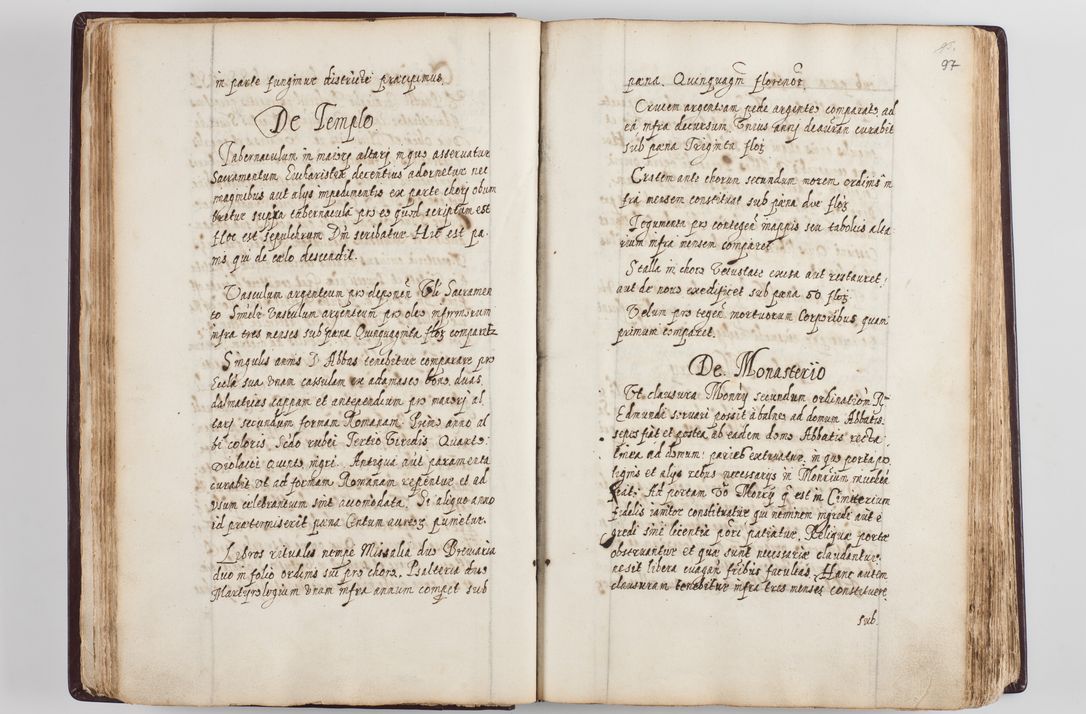 in parte fungimur districte præcipimus.
De Templo.
Tabernaculum in maiorj altarj in quo asseruatur
Sacramentum Eucharistiæ decentius adornetur nec
imaginibus aut alijs impedimentis ex parte chorj obum
bretur supra tabernacula pro eo quod scriptum est
Hoc est sepulchrum Dni scribatur Hic est pa-
nis, qui de cælo descendit.
Vasculum argenteum pro deponen Sacramen
to Simile vasculum argenteum pro oleo infirmorum
infra tres menses sub pæna Quinquaginta flor comparet
Singulis annis D Abbas tenebitur comparare pro
Eccla sua vnam cassulam ex adamasco bono, duas
dalmaticas cappam et antependium pro maiorj al
tarj secundum formam Romanam. Primo anno al
bi coloris. Scdo rubei Tertio Viredis Quarto:
violacei quinto nigri. Antiqua aut paramenta
curabit vt ad formam Romanam et ad
vsum celebrantium sint accomodata. Si aliquo anno
id prætermiserit pæna Centum aureor punietur.
Libros rituales nempe Missalia duo Breuiaria
duo in folio ordinis sui pro choro. Psalteria duo
Martyrologium vnum infra annum compet sub
97
pæna. Quinquagin florenor.
Crucem argenteam pede argenteo comparato, ad
ea infra decursum Vnius annj deauran curabit
sub pæna Triginta flor
Cratem ante chorum secundum morem ordinis in
fra mensem constituat sub pæna duc flor
Tegumenta pro contegen mappis seu tabolis alta
rium infra mensem comparet
Stalla in choro Vetustate exesa aut restauret,
aut de nouo exedificet sub pæna 50 flor
Velum pro tegen mortuorum Corporibus quam
primum comparet.
De Monasterio
Vt clausura Monrij secundum ordination R
Edmundi seruari possit à balneo ad domum Abbatis
sepis fiat et postea ab eadem domo Abbatis recta
linea ad domum: paries extruatur, in quo porta pro
lignis et alijs rebus necessarijs in Monrium inuehen
fiat. Ad portam Monrij q est in Cimiterium
fidelis ianitor constituatur qui neminem ingredi aut e
gredi sine licentia priori patiatur. Reliquæ portæ
obseruantur et quæ sunt necessariæ claudantur,
ne sit libera euagan fribus facultas. Hanc autem
clausuram tenebitur infra tres menses constituere
sub